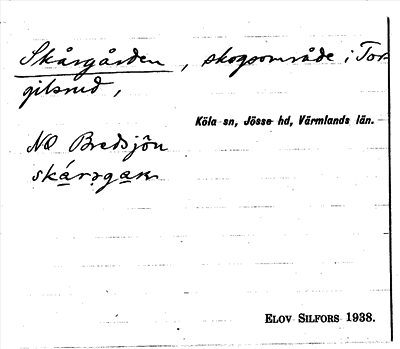 Skårgården, skogsområde i Tor-
gilsrud,
Köla sn, Jösse hd, Värmlands län.
NO Bredsjön
ELOV SILFORS 1938.